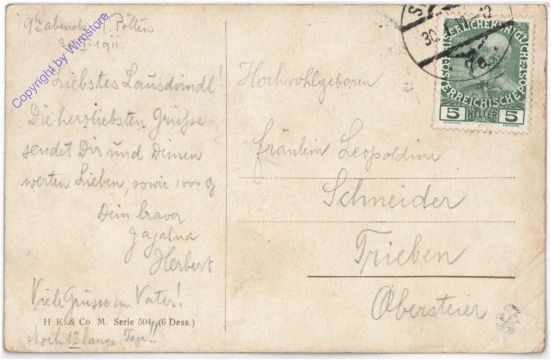 9h abends St. Pölten
30. I. 1911.
Liebstes Lausdirndl!
Die herzliebsten Grüsse
sendet Dir und Deinen
werten Lieben, sowie 1000
Dein braver
Herbert
Viele Grüsse an Vater!
H. K. & Co. M. Serie 504 (6 Dess.)
Noch 12 lange Tage..
Hochwohlgeboren
Fräulein Leopoldine
Schneider
Trieben
Obersteier
KAISERLICHE KÖNIGLICHE
ÖSTERREICHISCHE
5 HELLER 5
Copyright by Wimstore